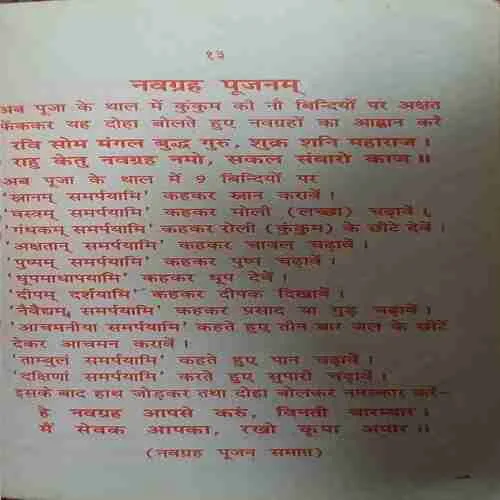 १३
नवग्रह पूजनम्
अब पूजा के थाल में कुंकुम की नौ बिन्दियों पर अक्षत
फेंककर यह दोहा बोलते हुए नवग्रहों का आह्वान करें
रवि सोम मंगल बुद्ध गुरु, शुक्र शनि महाराज।
राहु केतु नवग्रह नमो, सकल संवारो काज॥
अब पूजा के थाल में 9 बिन्दियों पर
'स्नानम् समर्पयामि' कहकर स्नान करावें।
'वस्त्रम् समर्पयामि' कहकर मोली (लच्छा) चढ़ावें।
'गंधकम् समर्पयामि' कहकर रोली (कुंकुम) के छींटे देवें।
'अक्षतान् समर्पयामि' कहकर चावल चढ़ावें।
'पुष्पम् समर्पयामि' कहकर पुष्प चढ़ावें।
'धूपमाघ्रापयामि' कहकर धूप देवें।
'दीपम् दर्शयामि' कहकर दीपक दिखावें।
'नैवेद्यम् समर्पयामि' कहकर प्रसाद या गुड़ चढ़ावें।
'आचमनीया समर्पयामि' कहते हुए तीन बार जल के छींटे
देकर आचमन करावें।
'ताम्बुलं समर्पयामि' कहते हुए पान चढ़ावें।
'दक्षिणां समर्पयामि' करते हुए सुपारी चढ़ावें।
इसके बाद हाथ जोड़कर तथा दोहा बोलकर नमस्कार करें-
हे नवग्रह आपसे करुं, विनती बारम्बार।
मैं सेवक आपका, रखो कृपा अपार॥
(नवग्रह पूजन समाप्त)